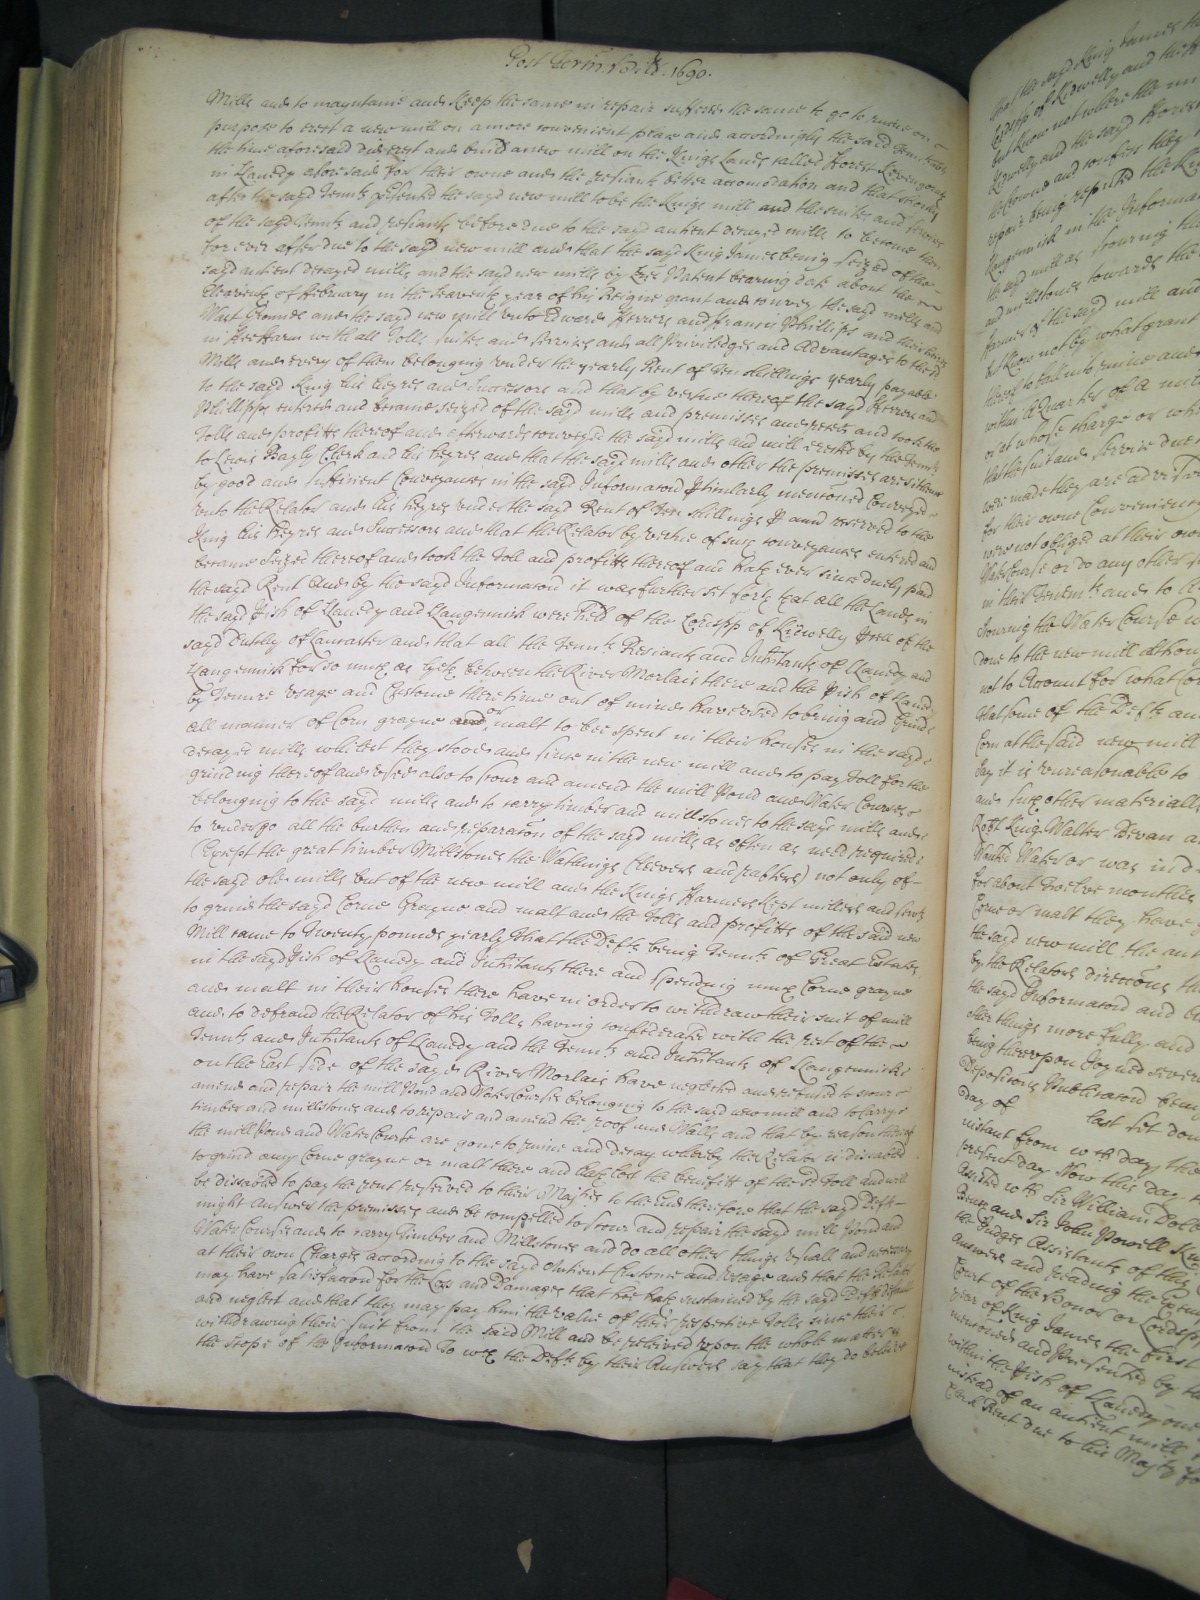 Post Term. 1690.
Mills and to mayntaine and keep the same in repair suffered the same to go to ruine on
purpose to erect a new mill on a more convenient place and accordingly the said
the time aforesaid did erect and build a new mill on the Kings Lands called Forest
in Llanedy aforesaid for their owne and the resiants better accomodation and that
after the sayd Tennts presented the sayd new mill to be the Kings mill and the suites and
of the sayd Tennts and resiants before due to the sayd antient decayed mills to become
for ever after due to the sayd new mill and that the sayd King James being seized of the
sayd antient decayed mills and the said new mills by Lres Patent bearing date about the
of February in the Seaventh year of his Reigne grant and convey the sayd mills and
Wast Grounds and the sayd new mill unto Edward Ferrers and Francis Phillips and their heires
in ffeefarm with all Tolls suites and services and all Priviledges and Advantages to the sd
Mills and every of them belonging under the yearly Rent of Ten shillings yearly payable
to the sayd King his heyres and Successors and that by vertue thereof the sayd Ferrers and
Phillipps entered and became seized of the sayd mills and premisses and and took the
Tolls and profitts thereof and afterwards conveyed the sayd mills and mill erected by the Tennts
to Lewis Bayly Clerk and his heyres and that the sayd mills and other the premisses are since
by good and sufficient Conveyances in the sayd Informacon pticularly mentioned Conveyed
unto the Relator and his heyres under the sayd Rent of Ten shillings p ann reserved to the
King his heyres and Successors and that the Relator by vertue of such conveyances entered and
became seized thereof and took the Toll and profitts thereof and hath ever since duely paid
the sayd Rent And by the sayd Informacon it was further set forth that all the Lands in
the sayd Pish of Llanedy and Llangennith were held of the Lordspp of Kidwelly pcell of the
sayd Dutchy of Lancaster and that all the Tennts Resiants and Inhitants of Llanedy and
Llangennith for so much as lyeth between the River Morlais there and the Pish of Llanedy
by Tenure Usage and Custome there time out of minde have used to bring and Grind
all manner of Corn grayne and or malt to bee spent in their houses in the sayd
decayed mills whilest they stood and since in the new mill and to pay Toll for the
grinding thereof and used also to scour and amend the mill Pond and Water Courses
belonging to the sayd mills and to carry timber and millstones to the sayd mills and
to undergo all the burthen and reparacon of the sayd mills as often as need required
(Except the great timber Millstones the Wathings Cleevers and Rafters) not only of
the sayd old mills but of the new mill and the Kings Farmers kept millers and servts
to grind the sayd Corne Grayne and malt and the Tolls and profitts of the said new
Mill came to Twenty pounds yearly That the Defts being Tennts of Great Estates
in the sayd Pish of Llanedy and Inhitants there and spending much Corne grayne
and malt in their houses there have in order to withdraw their suit of mill
and to defraud the Relator of his Tolls having confederated with the rest of the
Tennts and Inhitants of Llanedy and the Tennts and Inhitants of Llangennith
on the East side of the sayd River Morlais have neglected and refused to scour
amend and repair the mill Pond and Water Course belonging to the sayd new mill and to carry
timber and millstones and to repair and amend the roof and Walls and that by reason thereof
the mill Pond and Water Course are gone to ruine and decay whereby the Relator is disabled
to grind any Corne grayne or malt there and hath lost the benefitt of the sd Toll and will
be disabled to pay the rent reserved to their Majties to the end therefore that the sayd Defts
might Answer the premisses and be compelled to scour and repair the sayd mill Pond and
Water Course and to carry Timber and Millstones and do all other things usuall and necessary
at their own Charges according to the sayd Antient Custome and usage and that the Relator
may have satisfaccon for the Loss and Damages that hee hath sustained by the sayd Defts default
and neglect and that they may pay him the value of their respective Tolls since their
withdrawing their suit from the said Mill and be releived upon the whole matter is
the scope of the Informacon To wch the Defts by their Answers say that they do beleive
that the sayd King James
Lordspp of Kidwelly and the
but know not where the
Kidwelly and the sayd
welcome and confess they
repair being reputed the
Llangennith in the Informa
the sayd mill as scouring the
and millstones towards the
farmer of the sayd mill and
but know not by what grant
thereof to fall into ruine and
within a Quarter of a mile
or at whose charge or who
that the suit and service due
were made they are advised
for their owne Conveniency
were not obliged at their own
Water Course or do any other
in their Tenemts and to
scouring the Water Course
done to the new mill althou
not to Account for what Cor
That some of the Defts and
Corn at the said new mill
say it is unreasonable to
and such other materialls
Robt King Walter Bevan
Wanted Water or was in
for about Twelve months
Corne or malt they have
the sayd new mill the
by the Relators direccons
the sayd Informacon and
other things more fully and
being thereupon Joyned sever
Deposicons Publicacon being
day of last set down
instant from wch day the
present day Now this day
Assisted wth Sir William Dolben
Bench and Sir John Powell
the Judges Assistants of this
Answers and reading the
Court of the Honor or Lordspp
year of King James the first
mentioned and presented by
within the Pish of Llanedy one
instead of an antient mill
Rent due to his Majty